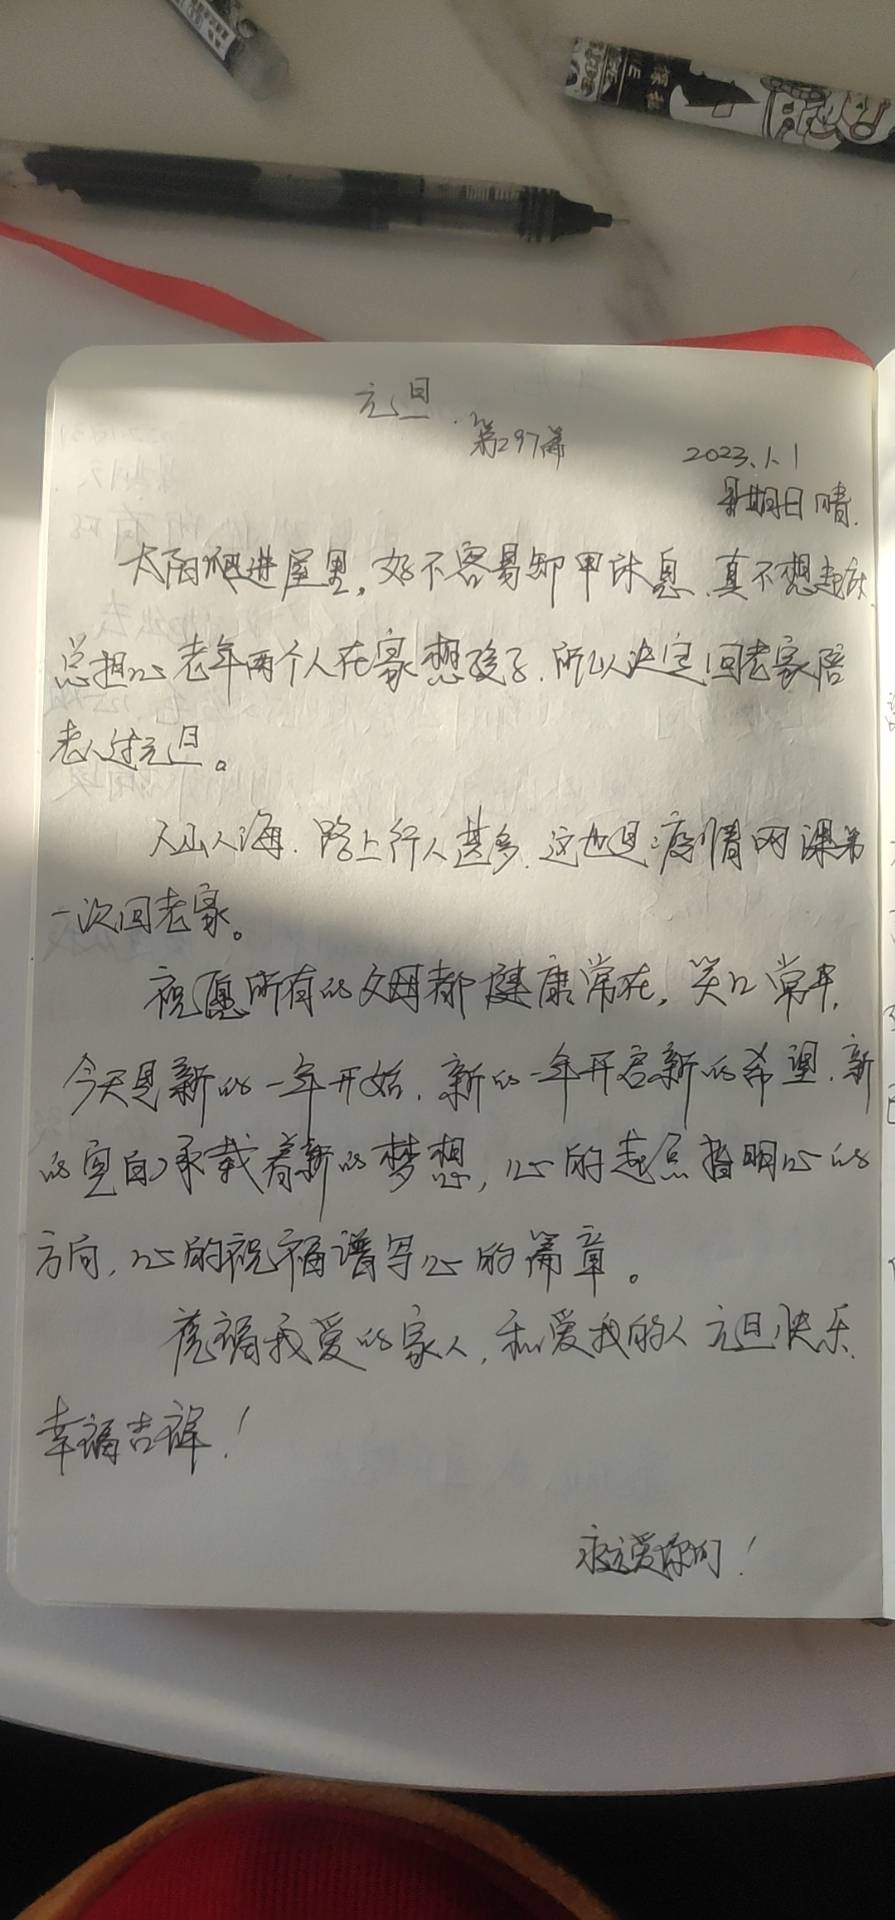 元旦
第297篇
2023.1.1
星期日晴.
太阳爬进屋里,好不容易卸甲休息.真不想起床.
总担心老年两个人在家想孩子.所以决定回老家陪
老人过元旦。
人山人海.路上行人甚多.这也是疫情网课第
一次回老家。
祝愿所有的父母都健康常在,笑口常开.
今天是新的一年开始.新的一年开启新的希望.新
的空白承载着新的梦想,心的起点指明心的
方向,心的祝福谱写心的篇章。
祝福我爱的家人,和爱我的人元旦快乐.
幸福吉祥!
永远爱你们!